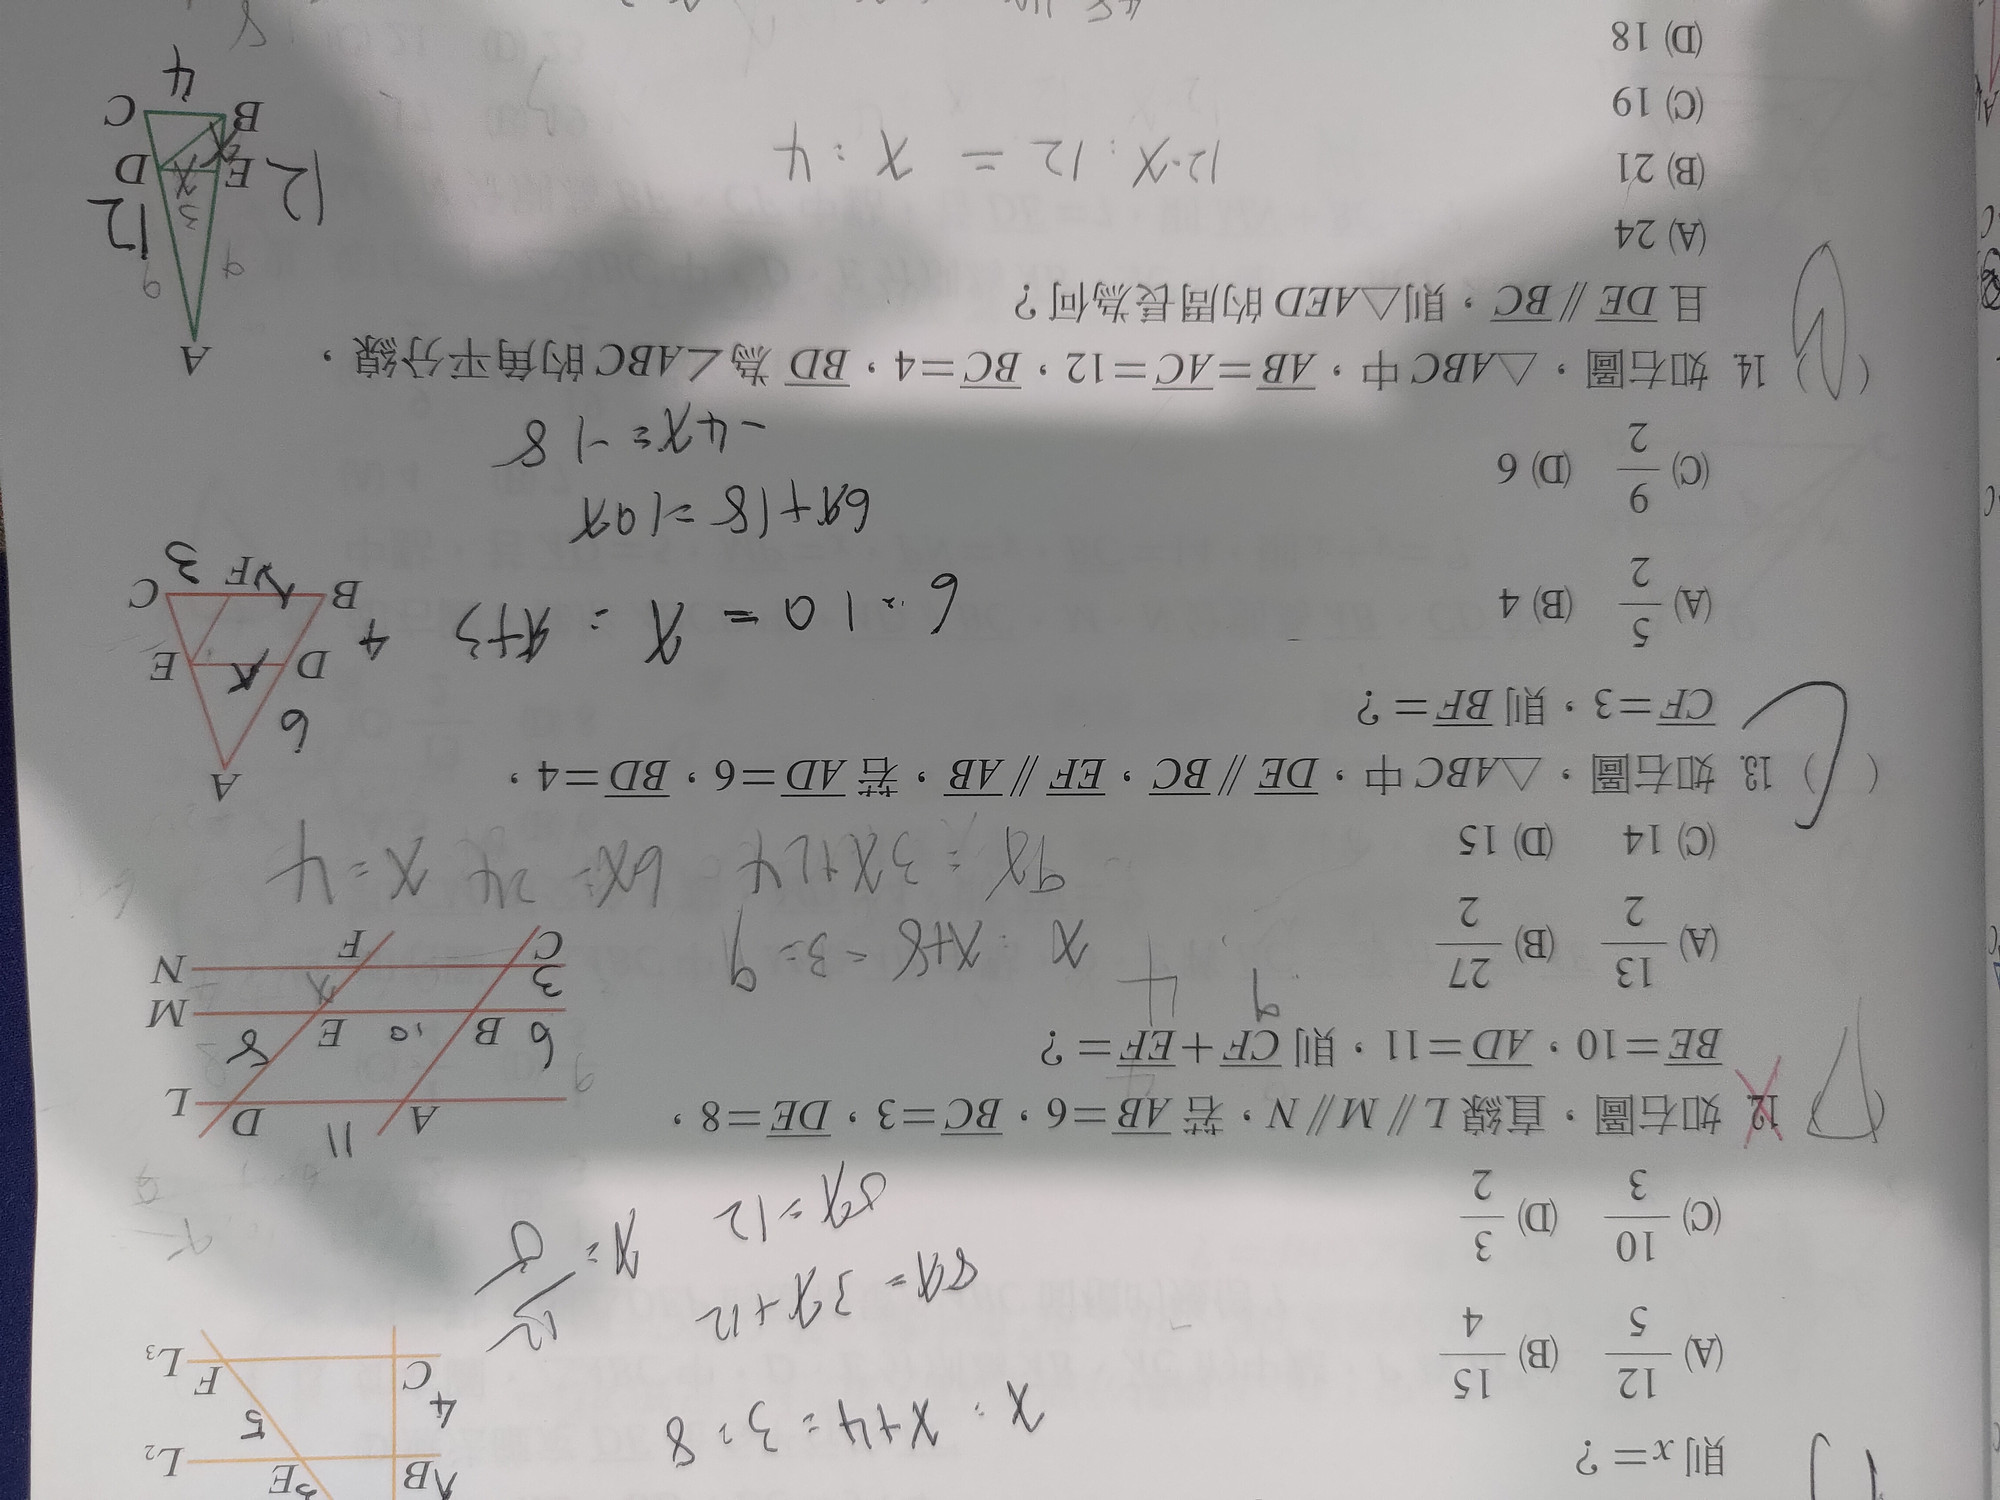 則 x=?
x : x+4 = 3 : 8
(A) 12/5 (B) 15/4
8x = 3x+12
(C) 10/3 (D) 3/2
5x = 12 x = 12/5
B E 3 L₂
4 5
C F L₃
12. 如右圖,直線 L // M // N,若 AB=6,BC=3,DE=8,
BE=10,AD=11,則 CF+EF=?
9 4
(A) 13/2 (B) 27/2
x : x+8 = 3 : 9
(C) 14 (D) 15
9x = 3x+24 6x = 24 x = 4
A 11 D L
6 8
B 10 E M
3 x
C F N
13. 如右圖,△ABC 中,DE // BC,EF // AB,若 AD=6,BD=4,
CF=3,則 BF=?
6 : 10 = x : x+3
(A) 5/2 (B) 4
6x+18 = 10x
(C) 9/2 (D) 6
-4x = -18
A
6
D x E
4
B x F 3 C
14. 如右圖,△ABC 中,AB=AC=12,BC=4,BD 為∠ABC的角平分線,
且 DE // BC,則△AED 的周長為何?
(A) 24
(B) 21
12-x : 12 = x : 4
(C) 19
(D) 18
A
9 9
12 3 12
E x D
x
B C
4